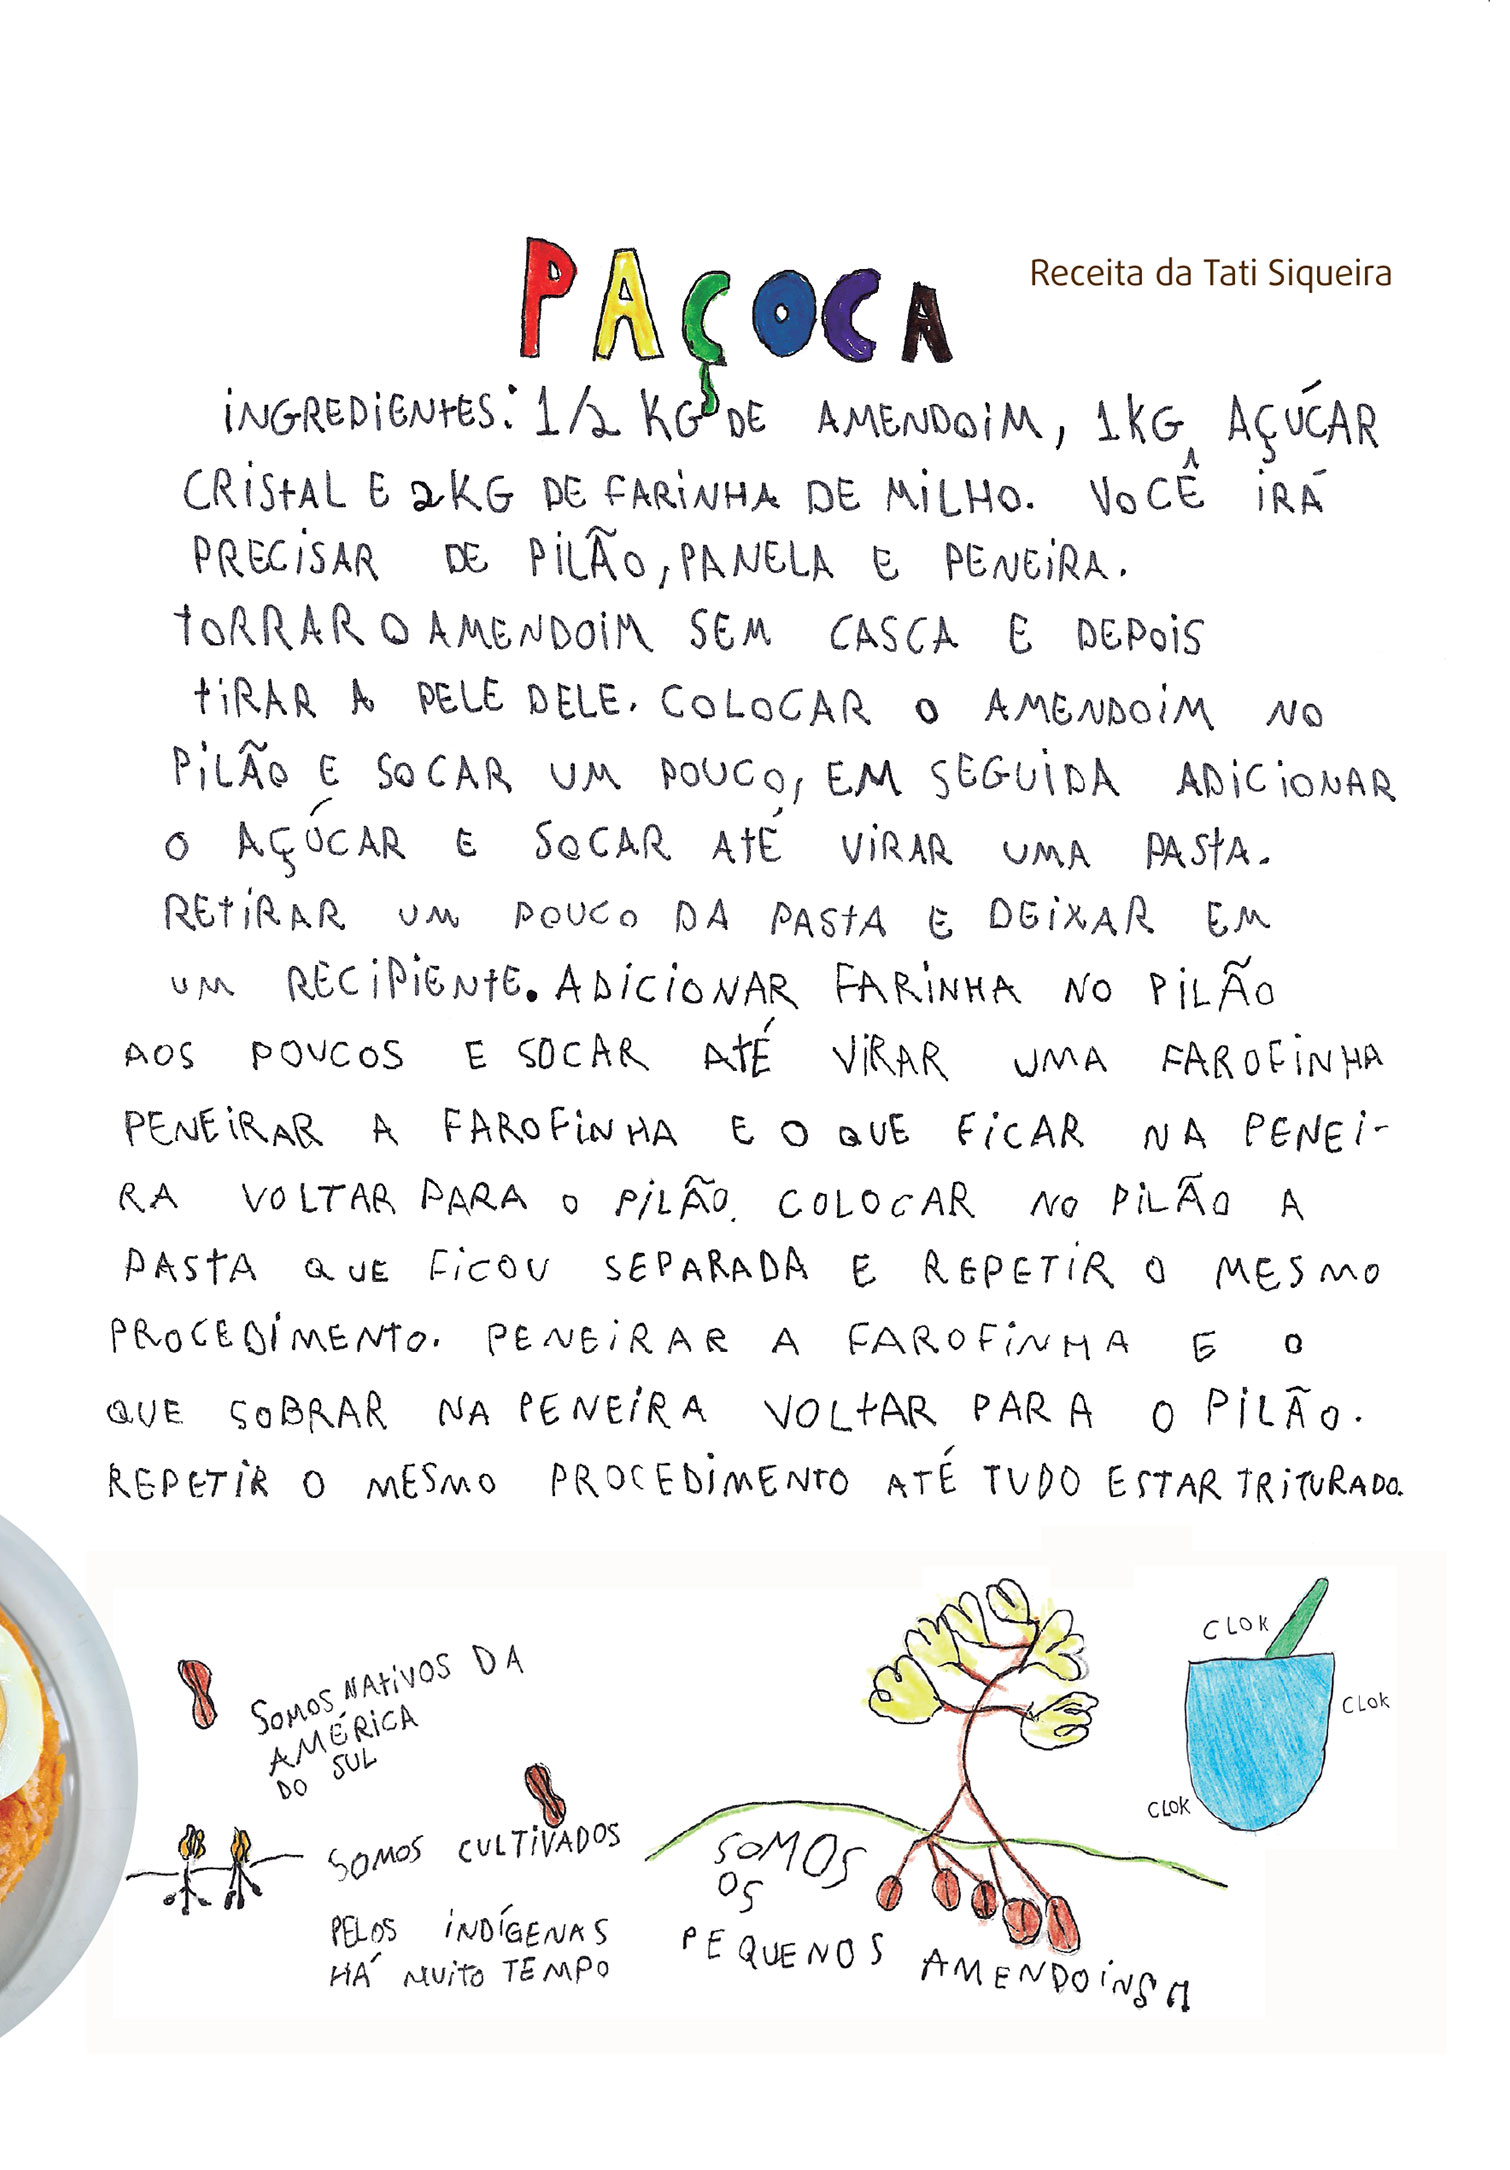 PAÇOCA
Receita da Tati Siqueira
INGREDIENTES: 1/2 KG DE AMENDOIM, 1KG AÇÚCAR
CRISTAL E 2KG DE FARINHA DE MILHO. VOCÊ IRÁ
PRECISAR DE PILÃO, PANELA E PENEIRA.
TORRAR O AMENDOIM SEM CASCA E DEPOIS
TIRAR A PELE DELE. COLOCAR O AMENDOIM NO
PILÃO E SOCAR UM POUCO, EM SEGUIDA ADICIONAR
O AÇÚCAR E SOCAR ATÉ VIRAR UMA PASTA.
RETIRAR UM POUCO DA PASTA E DEIXAR EM
UM RECIPIENTE. ADICIONAR FARINHA NO PILÃO
AOS POUCOS E SOCAR ATÉ VIRAR UMA FAROFINHA
PENEIRAR A FAROFINHA E O QUE FICAR NA PENEI-
RA VOLTAR PARA O PILÃO. COLOCAR NO PILÃO A
PASTA QUE FICOU SEPARADA E REPETIR O MESMO
PROCEDIMENTO. PENEIRAR A FAROFINHA E O
QUE SOBRAR NA PENEIRA VOLTAR PARA O PILÃO.
REPETIR O MESMO PROCEDIMENTO ATÉ TUDO ESTAR TRITURADO.
SOMOS NATIVOS DA
AMÉRICA
DO SUL
SOMOS CULTIVADOS
PELOS INDÍGENAS
HÁ MUITO TEMPO
SOMOS
OS
PEQUENOS AMENDOINS
CLOK
CLOK
CLOK